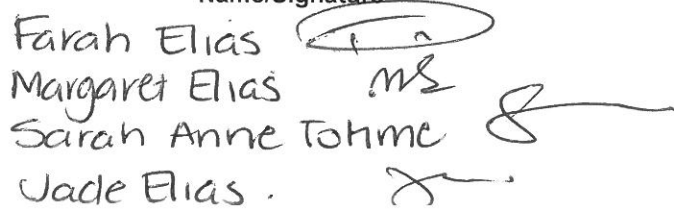 Name/Signature
Farah Elias
Margaret Elias
Sarah Anne Tohme
Jade Elias.